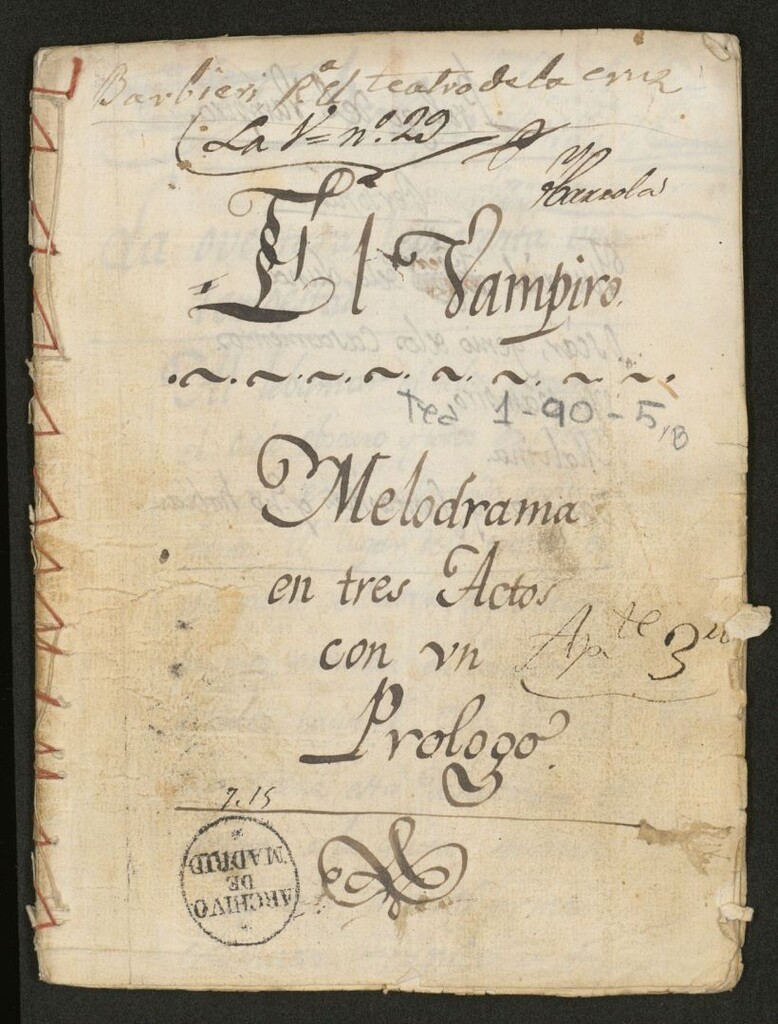 Barbieri pª el teatro de la cruz
La Vª nº. 29
El Vampiro.
Tea 1-90-5, B
Melodrama
en tres Actos
con vn
Apte 3º
Prologo
7.15
ARCHIVO
DE
MADRID